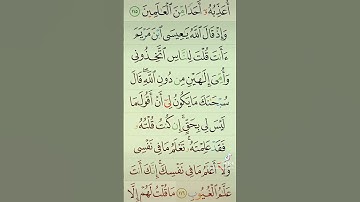 أُعَذِّبُهُۥٓ أَحَدًا مِّنَ ٱلْعَٰلَمِينَ ١١٥
وَإِذْ قَالَ ٱللَّهُ يَٰعِيسَى ٱبْنَ مَرْيَمَ
ءَأَنتَ قُلْتَ لِلنَّاسِ ٱتَّخِذُونِى
وَأُمِّىَ إِلَٰهَيْنِ مِن دُونِ ٱللَّهِ ۖ قَالَ
سُبْحَٰنَكَ مَا يَكُونُ لِىٓ أَنْ أَقُولَ مَا
لَيْسَ لِى بِحَقٍّ ۚ إِن كُنتُ قُلْتُهُۥ
فَقَدْ عَلِمْتَهُۥ ۚ تَعْلَمُ مَا فِى نَفْسِى
وَلَآ أَعْلَمُ مَا فِى نَفْسِكَ ۚ إِنَّكَ أَنتَ
عَلَّٰمُ ٱلْغُيُوبِ ١١٦ مَا قُلْتُ لَهُمْ إِلَّا